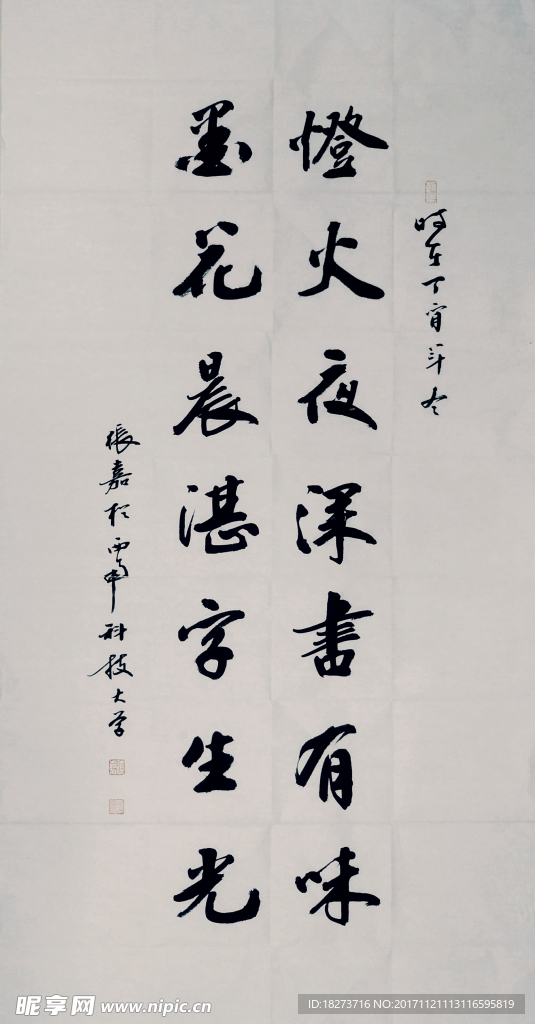 时在丁酉年冬
燈火夜深書有味
墨花晨湛字生光
張嘉於西南科技大学
昵享网 www.nipic.cn
ID:18273716 NO:20171121113116595819